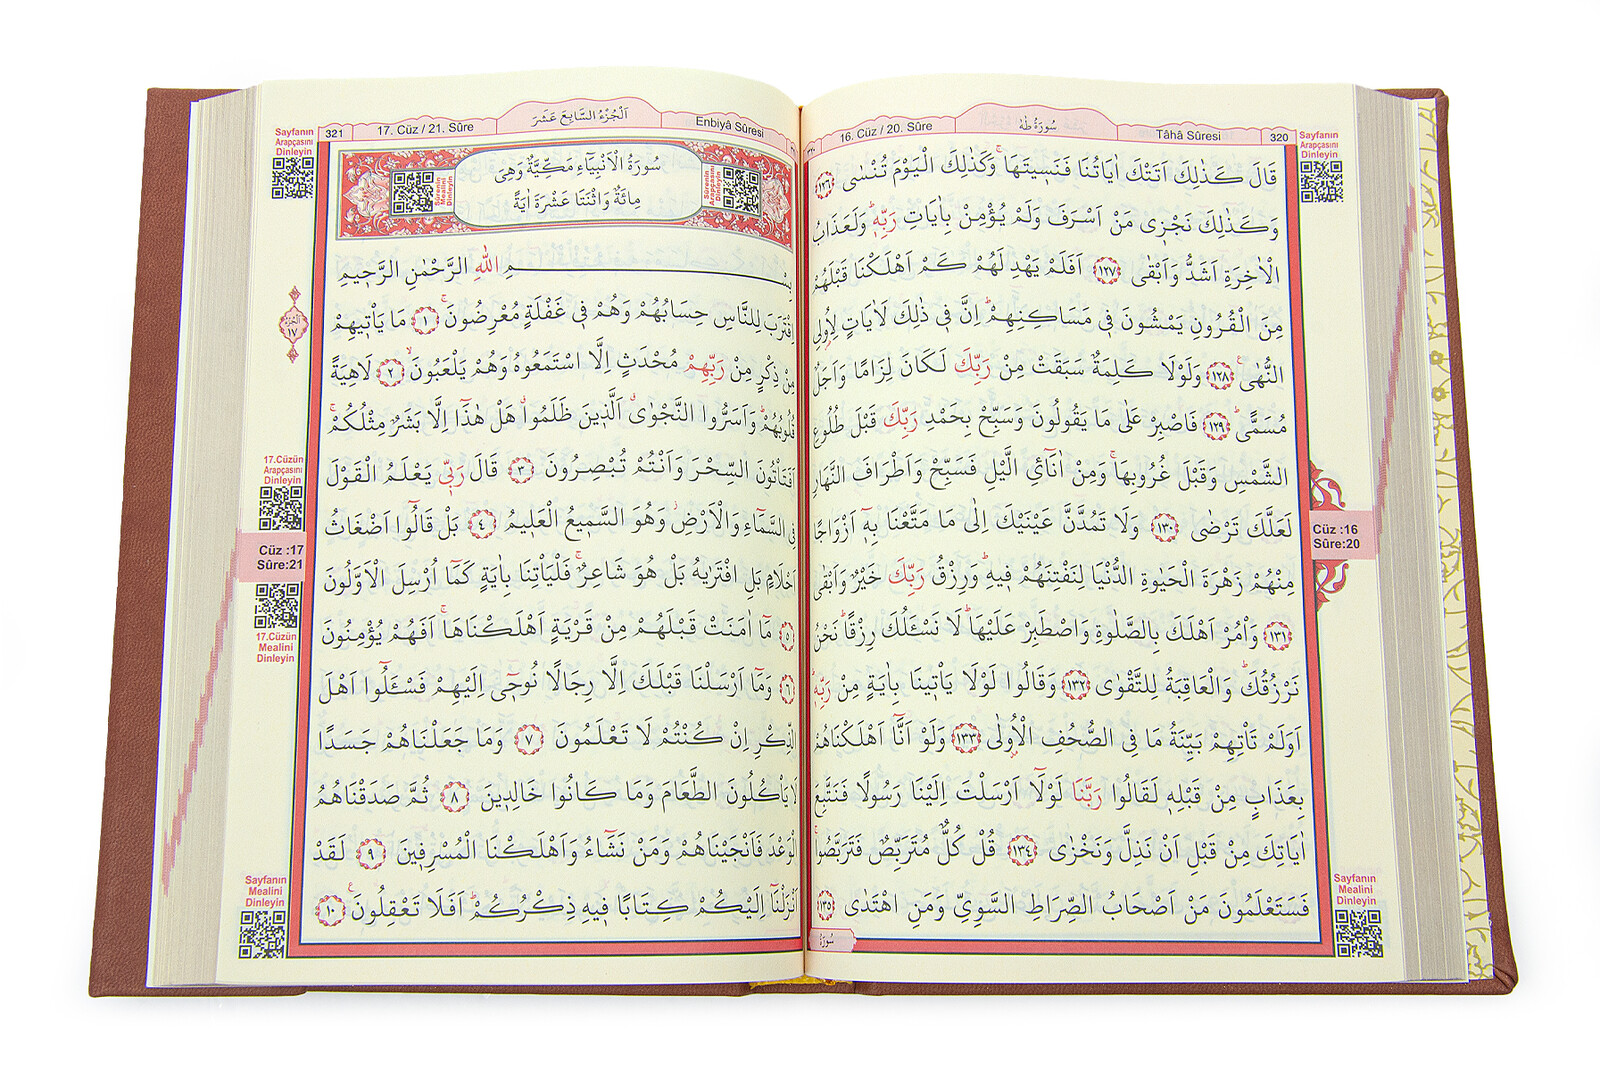 320
Tâhâ Sûresi
سُورَةُ طٰهٰ
16. Cüz / 20. Sûre
Sayfanın
Arapçasını
Dinleyin
قَالَ كَذٰلِكَ اَتَتْكَ اٰيَاتُنَا فَنَسٖيتَهَاۚ وَكَذٰلِكَ الْيَوْمَ تُنْسٰى ﴿١٢٦﴾
وَكَذٰلِكَ نَجْزٖى مَنْ اَسْرَفَ وَلَمْ يُؤْمِنْ بِاٰيَاتِ رَبِّهٖۜ وَلَعَذَابُ
الْاٰخِرَةِ اَشَدُّ وَاَبْقٰى ﴿١٢٧﴾ اَفَلَمْ يَهْدِ لَهُمْ كَمْ اَهْلَكْنَا قَبْلَهُمْ
مِنَ الْقُرُونِ يَمْشُونَ فٖى مَسَاكِنِهِمْۜ اِنَّ فٖى ذٰلِكَ لَاٰيَاتٍ لِاُو۬لِى
النُّهٰىۚ ﴿١٢٨﴾ وَلَوْلَا كَلِمَةٌ سَبَقَتْ مِنْ رَبِّكَ لَكَانَ لِزَامًا وَاَجَلٌ
مُسَمًّىۜ ﴿١٢٩﴾ فَاصْبِرْ عَلٰى مَا يَقُولُونَ وَسَبِّحْ بِحَمْدِ رَبِّكَ قَبْلَ طُلُوعِ
الشَّمْسِ وَقَبْلَ غُرُوبِهَاۚ وَمِنْ اٰنَآئِ الَّيْلِ فَسَبِّحْ وَاَطْرَافَ النَّهَارِ
لَعَلَّكَ تَرْضٰى ﴿١٣٠﴾ وَلَا تَمُدَّنَّ عَيْنَيْكَ اِلٰى مَا مَتَّعْنَا بِهٖٓ اَزْوَاجًا
مِنْهُمْ زَهْرَةَ الْحَيٰوةِ الدُّنْيَا لِنَفْتِنَهُمْ فٖيهِۜ وَرِزْقُ رَبِّكَ خَيْرٌ وَاَبْقٰى
﴿١٣١﴾ وَأْمُرْ اَهْلَكَ بِالصَّلٰوةِ وَاصْطَبِرْ عَلَيْهَاۜ لَا نَسْـَٔلُكَ رِزْقًاۜ نَحْنُ
نَرْزُقُكَۜ وَالْعَاقِبَةُ لِلتَّقْوٰى ﴿١٣٢﴾ وَقَالُوا لَوْلَا يَأْتٖينَا بِاٰيَةٍ مِنْ رَبِّهٖۜ
اَوَلَمْ تَأْتِهِمْ بَيِّنَةُ مَا فِى الصُّحُفِ الْاُو۫لٰى ﴿١٣٣﴾ وَلَوْ اَنَّٓا اَهْلَكْنَاهُمْ
بِعَذَابٍ مِنْ قَبْلِهٖ لَقَالُوا رَبَّنَا لَوْلَٓا اَرْسَلْتَ اِلَيْنَا رَسُولًا فَنَتَّبِعَ
اٰيَاتِكَ مِنْ قَبْلِ اَنْ نَذِلَّ وَنَخْزٰى ﴿١٣٤﴾ قُلْ كُلٌّ مُتَرَبِّصٌ فَتَرَبَّصُواۚ
فَسَتَعْلَمُونَ مَنْ اَصْحَابُ الصِّرَاطِ السَّوِيِّ وَمَنِ اهْتَدٰى ﴿١٣٥﴾
سُورَةُ
Cüz :16
Sûre:20
Sayfanın
Mealini
Dinleyin
Enbiyâ Sûresi
اَلْجُزْءُ السَّابِعَ عَشَرَ
17. Cüz / 21. Sûre
321
Sayfanın
Arapçasını
Dinleyin
سُورَةُ الْاَنْبِيَٓاءِ مَكِّيَّةٌ وَهِيَ
مِائَةٌ وَاثْنَتَا عَشْرَةَ اٰيَةً
Sûrenin
Arapçasını
Dinleyin
Sûrenin
Mealini
Dinleyin
بِسْمِ اللّٰهِ الرَّحْمٰنِ الرَّحٖيمِ
اِقْتَرَبَ لِلنَّاسِ حِسَابُهُمْ وَهُمْ فٖى غَفْلَةٍ مُعْرِضُونَۚ ﴿١﴾ مَا يَأْتٖيهِمْ
مِنْ ذِكْرٍ مِنْ رَبِّهِمْ مُحْدَثٍ اِلَّا اسْتَمَعُوهُ وَهُمْ يَلْعَبُونَۙ ﴿٢﴾ لَاهِيَةً
قُلُوبُهُمْۜ وَاَسَرُّوا النَّجْوٰىۗ اَلَّذٖينَ ظَلَمُواۗ هَلْ هٰذَٓا اِلَّا بَشَرٌ مِثْلُكُمْۚ
اَفَتَأْتُونَ السِّحْرَ وَاَنْتُمْ تُبْصِرُونَ ﴿٣﴾ قَالَ رَبّٖى يَعْلَمُ الْقَوْلَ
فِى السَّمَٓاءِ وَالْاَرْضِۘ وَهُوَ السَّمٖيعُ الْعَلٖيمُ ﴿٤﴾ بَلْ قَالُٓوا اَضْغَاثُ
اَحْلَامٍ بَلِ افْتَرٰيهُ بَلْ هُوَ شَاعِرٌۚ فَلْيَأْتِنَا بِاٰيَةٍ كَمَٓا اُرْسِلَ الْاَوَّلُونَ
﴿٥﴾ مَٓا اٰمَنَتْ قَبْلَهُمْ مِنْ قَرْيَةٍ اَهْلَكْنَاهَاۚ اَفَهُمْ يُؤْمِنُونَ
﴿٦﴾ وَمَٓا اَرْسَلْنَا قَبْلَكَ اِلَّا رِجَالًا نُوحٖٓى اِلَيْهِمْ فَسْـَٔلُٓوا اَهْلَ
الذِّكْرِ اِنْ كُنْتُمْ لَا تَعْلَمُونَ ﴿٧﴾ وَمَا جَعَلْنَاهُمْ جَسَدًا
لَا يَأْكُلُونَ الطَّعَامَ وَمَا كَانُوا خَالِدٖينَ ﴿٨﴾ ثُمَّ صَدَقْنَاهُمُ
الْوَعْدَ فَاَنْجَيْنَاهُمْ وَمَنْ نَشَٓاءُ وَاَهْلَكْنَا الْمُسْرِفٖينَ ﴿٩﴾ لَقَدْ
اَنْزَلْنَٓا اِلَيْكُمْ كِتَابًا فٖيهِ ذِكْرُكُمْۜ اَفَلَا تَعْقِلُونَۚ ﴿١٠﴾
اَلْجُزْءُ
١٧
17.Cüzün
Arapçasını
Dinleyin
Cüz :17
Sûre:21
17.Cüzün
Mealini
Dinleyin
Sayfanın
Mealini
Dinleyin